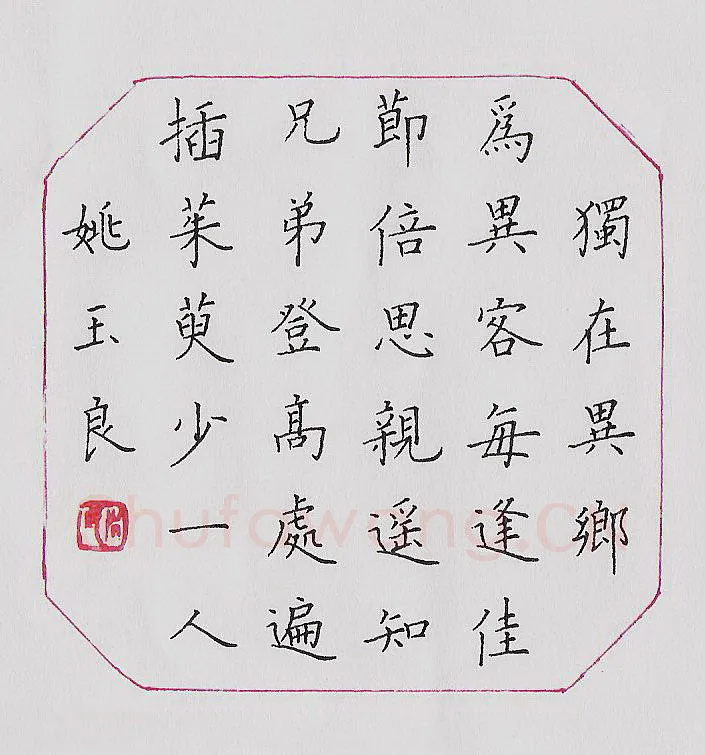 獨在異鄉
爲異客每逢佳
節倍思親遥知
兄弟登髙處遍
插茱萸少一人
姚玉良